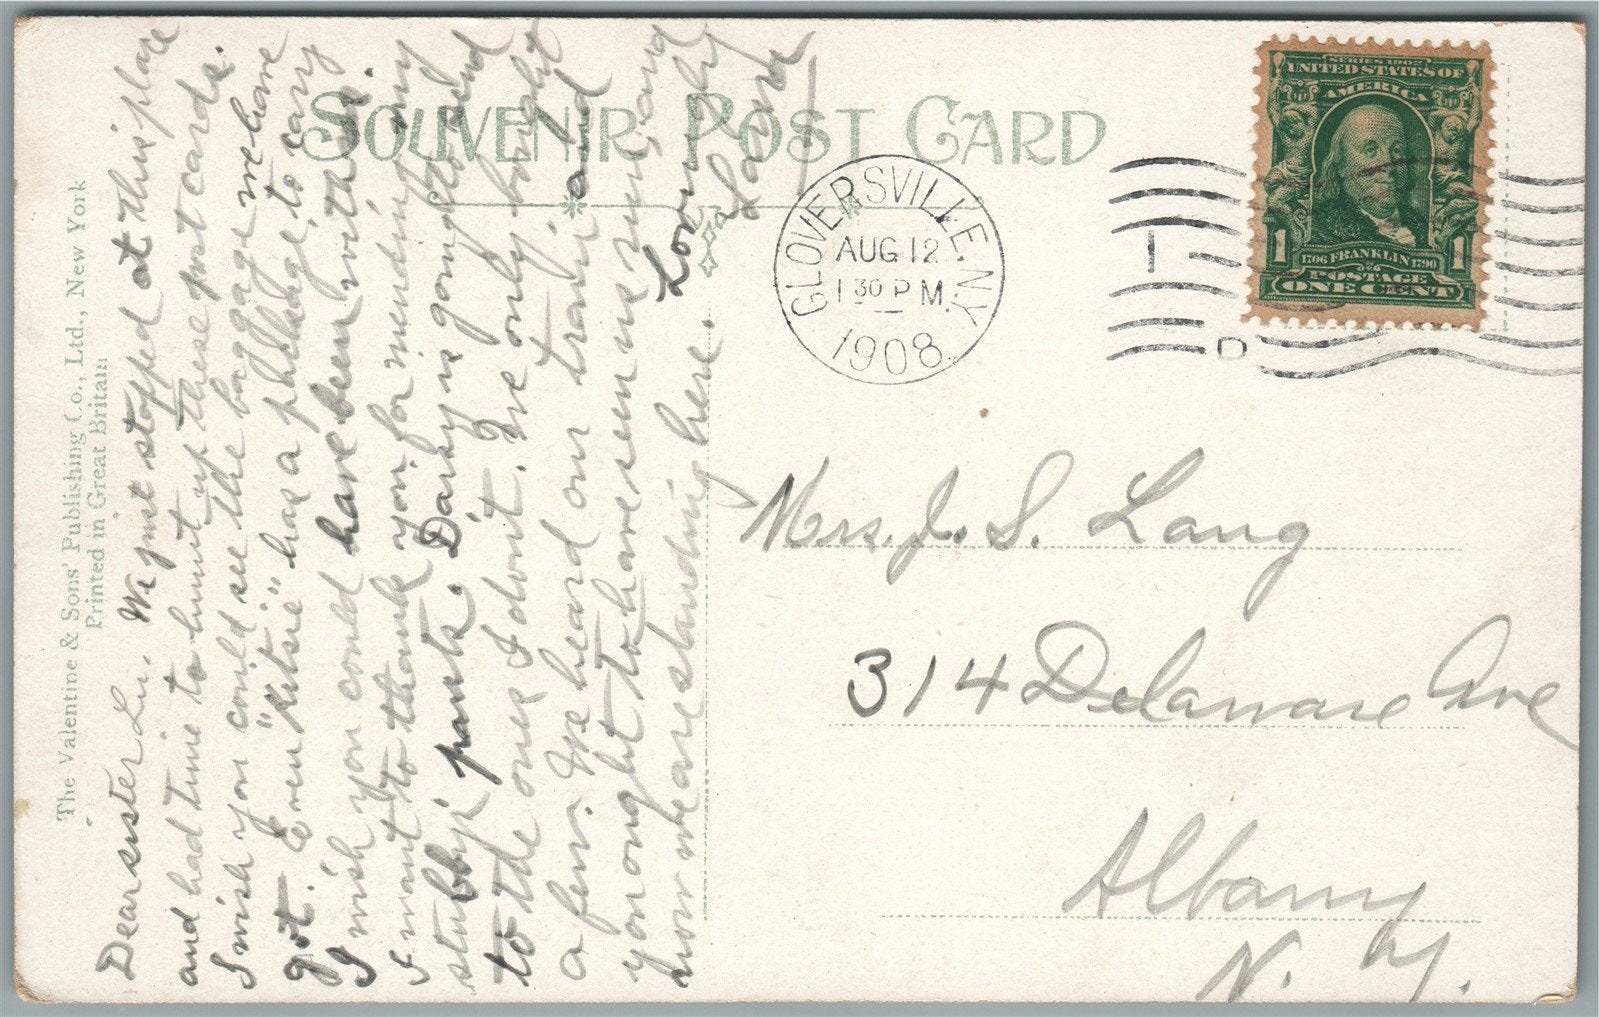 SOUVENIR POST CARD
The Valentine & Sons' Publishing Co., Ltd., New York
Printed in Great Britain
Dear sister Lu. We just stopped at this place
and had time to hunt up these post cards.
I wish you could see the baggage we have
got. Even "kitsie" has a package, to carry
I wish you could have been with us.
I want to thank you for mending my
stubby's pants. Darby is going to send
to the ones I don't. We only bought
a few. We heard our train and
you ought to have seen us run, and
now we are standing here. Lovingly
Laura
GLOVERSVILLE, N.Y.
AUG 12
1 30 P M
1908
1
D
SERIES 1902
UNITED STATES OF
AMERICA
1 1
1706 FRANKLIN 1790
POSTAGE
ONE CENT
Mrs. J. S. Lang
314 Delaware Ave
Albany
N. Y.